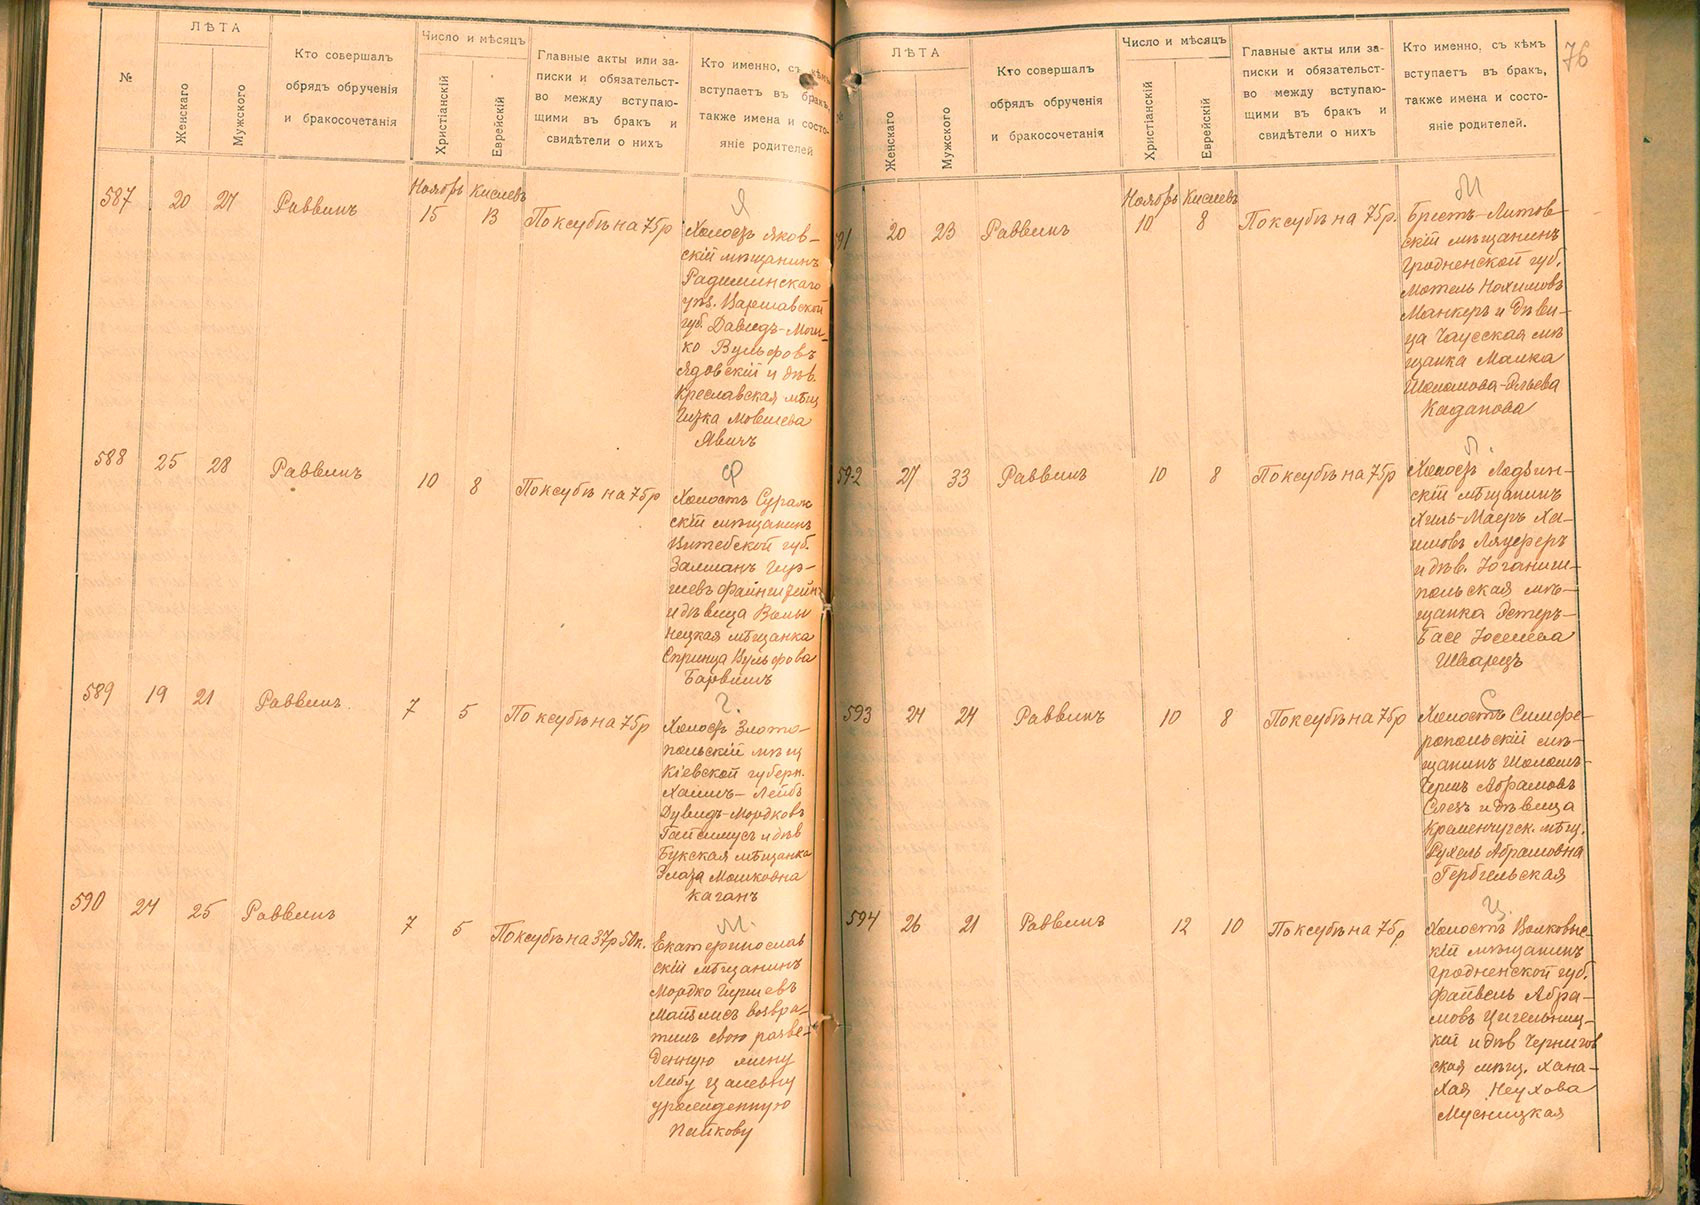 №
ЛѢТА
Женскаго
Мужского
Кто совершалъ
обрядъ обрученія
и бракосочетанія
Число и мѣсяцъ
Христіанскій
Еврейскій
Главные акты или за-
писки и обязательст-
во между вступаю-
щими въ бракъ и
свидѣтели о нихъ
Кто именно, съ кѣмъ
вступаетъ въ бракъ,
также имена и состо-
яніе родителей
587
20
27
Раввинъ
Ноябрь
15
Кислевъ
13
По ксубѣ на 75р
Я
Холост Яков-
скій мѣщанинъ
Радиминскаго
уѣз. Варшавской
губ. Давидъ-Мош-
ко Вульфовъ
Ядовскій и дѣв.
Креславская мѣщ
Гитка Мовшева
Явичъ
588
25
28
Раввинъ
10
8
По ксубѣ на 75р
Ф
Холостъ Сураж
скій мѣщанинъ
Витебской губ.
Залманъ Гир-
шевъ
и дѣвица
мѣщанка
Спринца Вульфова
589
19
21
Раввинъ
7
5
По ксубѣ на 75р
Г.
Холост Злото-
польскій мѣщ
Кіевской губерн.
Хаимъ-Лейбъ
Дувидъ-Мордковъ
Гайсинусъ и дѣв
Букская мѣщанка
Злата Мошковна
Каганъ
590
24
25
Раввинъ
7
5
По ксубѣ на 37р 50к.
М.
Екатеринослав
скій мѣщанинъ
Мордко Гиршевъ
Майзлисъ возвра-
тилъ свою разве-
денную жену
Либу
урожденную
Пайкову
76
№
ЛѢТА
Женскаго
Мужского
Кто совершалъ
обрядъ обрученія
и бракосочетанія
Число и мѣсяцъ
Христіанскій
Еврейскій
Главные акты или за-
писки и обязательст-
во между вступаю-
щими въ бракъ и
свидѣтели о нихъ
Кто именно, съ кѣмъ
вступаетъ въ бракъ,
также имена и состо-
яніе родителей.
91
20
23
Раввинъ
Ноябрь
10
Кислевъ
8
По ксубѣ на 75р.
М
Брестъ-Литов
скій мѣщанинъ
Гродненской губ.
Мотель Нохимовъ
Манкеръ и дѣви-
ца Чаусская мѣ
щанка Малка
Шоломова-Эльева
Каданова
592
27
33
Раввинъ
10
8
По ксубѣ на 75р
Л.
Холост Лодзин-
скій мѣщанинъ
Хиль-Маеръ Ха-
имовъ Ляуферъ
и дѣв. Юганиш-
польская мѣ-
щанка Эстеръ-
Бася Іоселева
Шварцъ
593
24
24
Раввинъ
10
8
По ксубѣ на 75р
С
Холостъ Симфе-
ропольскій мѣ-
щанинъ Шоломъ-
Гершъ Абрамовъ
и дѣвица
Кременчугск. мѣщ.
Рухель Абрамовна
Гербгельская
594
26
21
Раввинъ
12
10
По ксубѣ на 75р
Ц.
Холостъ Волковыс-
кій мѣщанинъ
Гродненской губ.
Файвель Абра-
мовъ Цигельниц-
кій и дѣв Чернигов
ская мѣщ. Хана-
Хая Неухова
Мусницкая